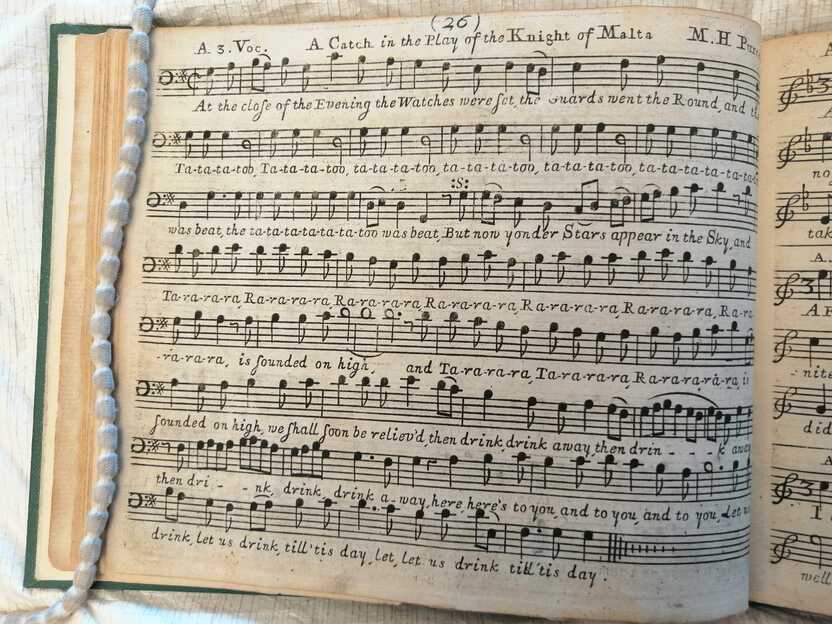 (26)
A 3. Voc. A Catch in the Play of the Knight of Malta M.H
At the close of the Evening the Watches were set, the Guards went the Round, and
Ta-ta-ta-too, Ta-ta-ta-too, ta-ta-ta-too, ta-ta-ta-too, ta-ta-ta-too, ta-ta-ta-ta-ta-ta-
was beat, the ta-ta-ta-ta-ta-ta-too was beat, But now yonder Stars appear in the Sky, and
:S:
Ta-ra-ra-ra, Ra-ra-ra-ra, Ra-ra-ra-ra, Ra-ra-ra-ra, Ra-ra-ra-ra, Ra-ra-ra-ra, Ra-ra-
-ra-ra-ra, is sounded on high, and Ta-ra-ra-ra, Ta-ra-ra-ra, Ra-ra-ra-ra-ra, is
sounded on high, we shall soon be reliev'd, then drink, drink away, then drin - - - k away
then dri - - nk, drink, drink a-way, here here's to you, and to you, and to you, Let us
drink, let us drink, till 'tis day, let, let us drink till 'tis day.
A
no
tak
A.
A
nite
did
A
I
well